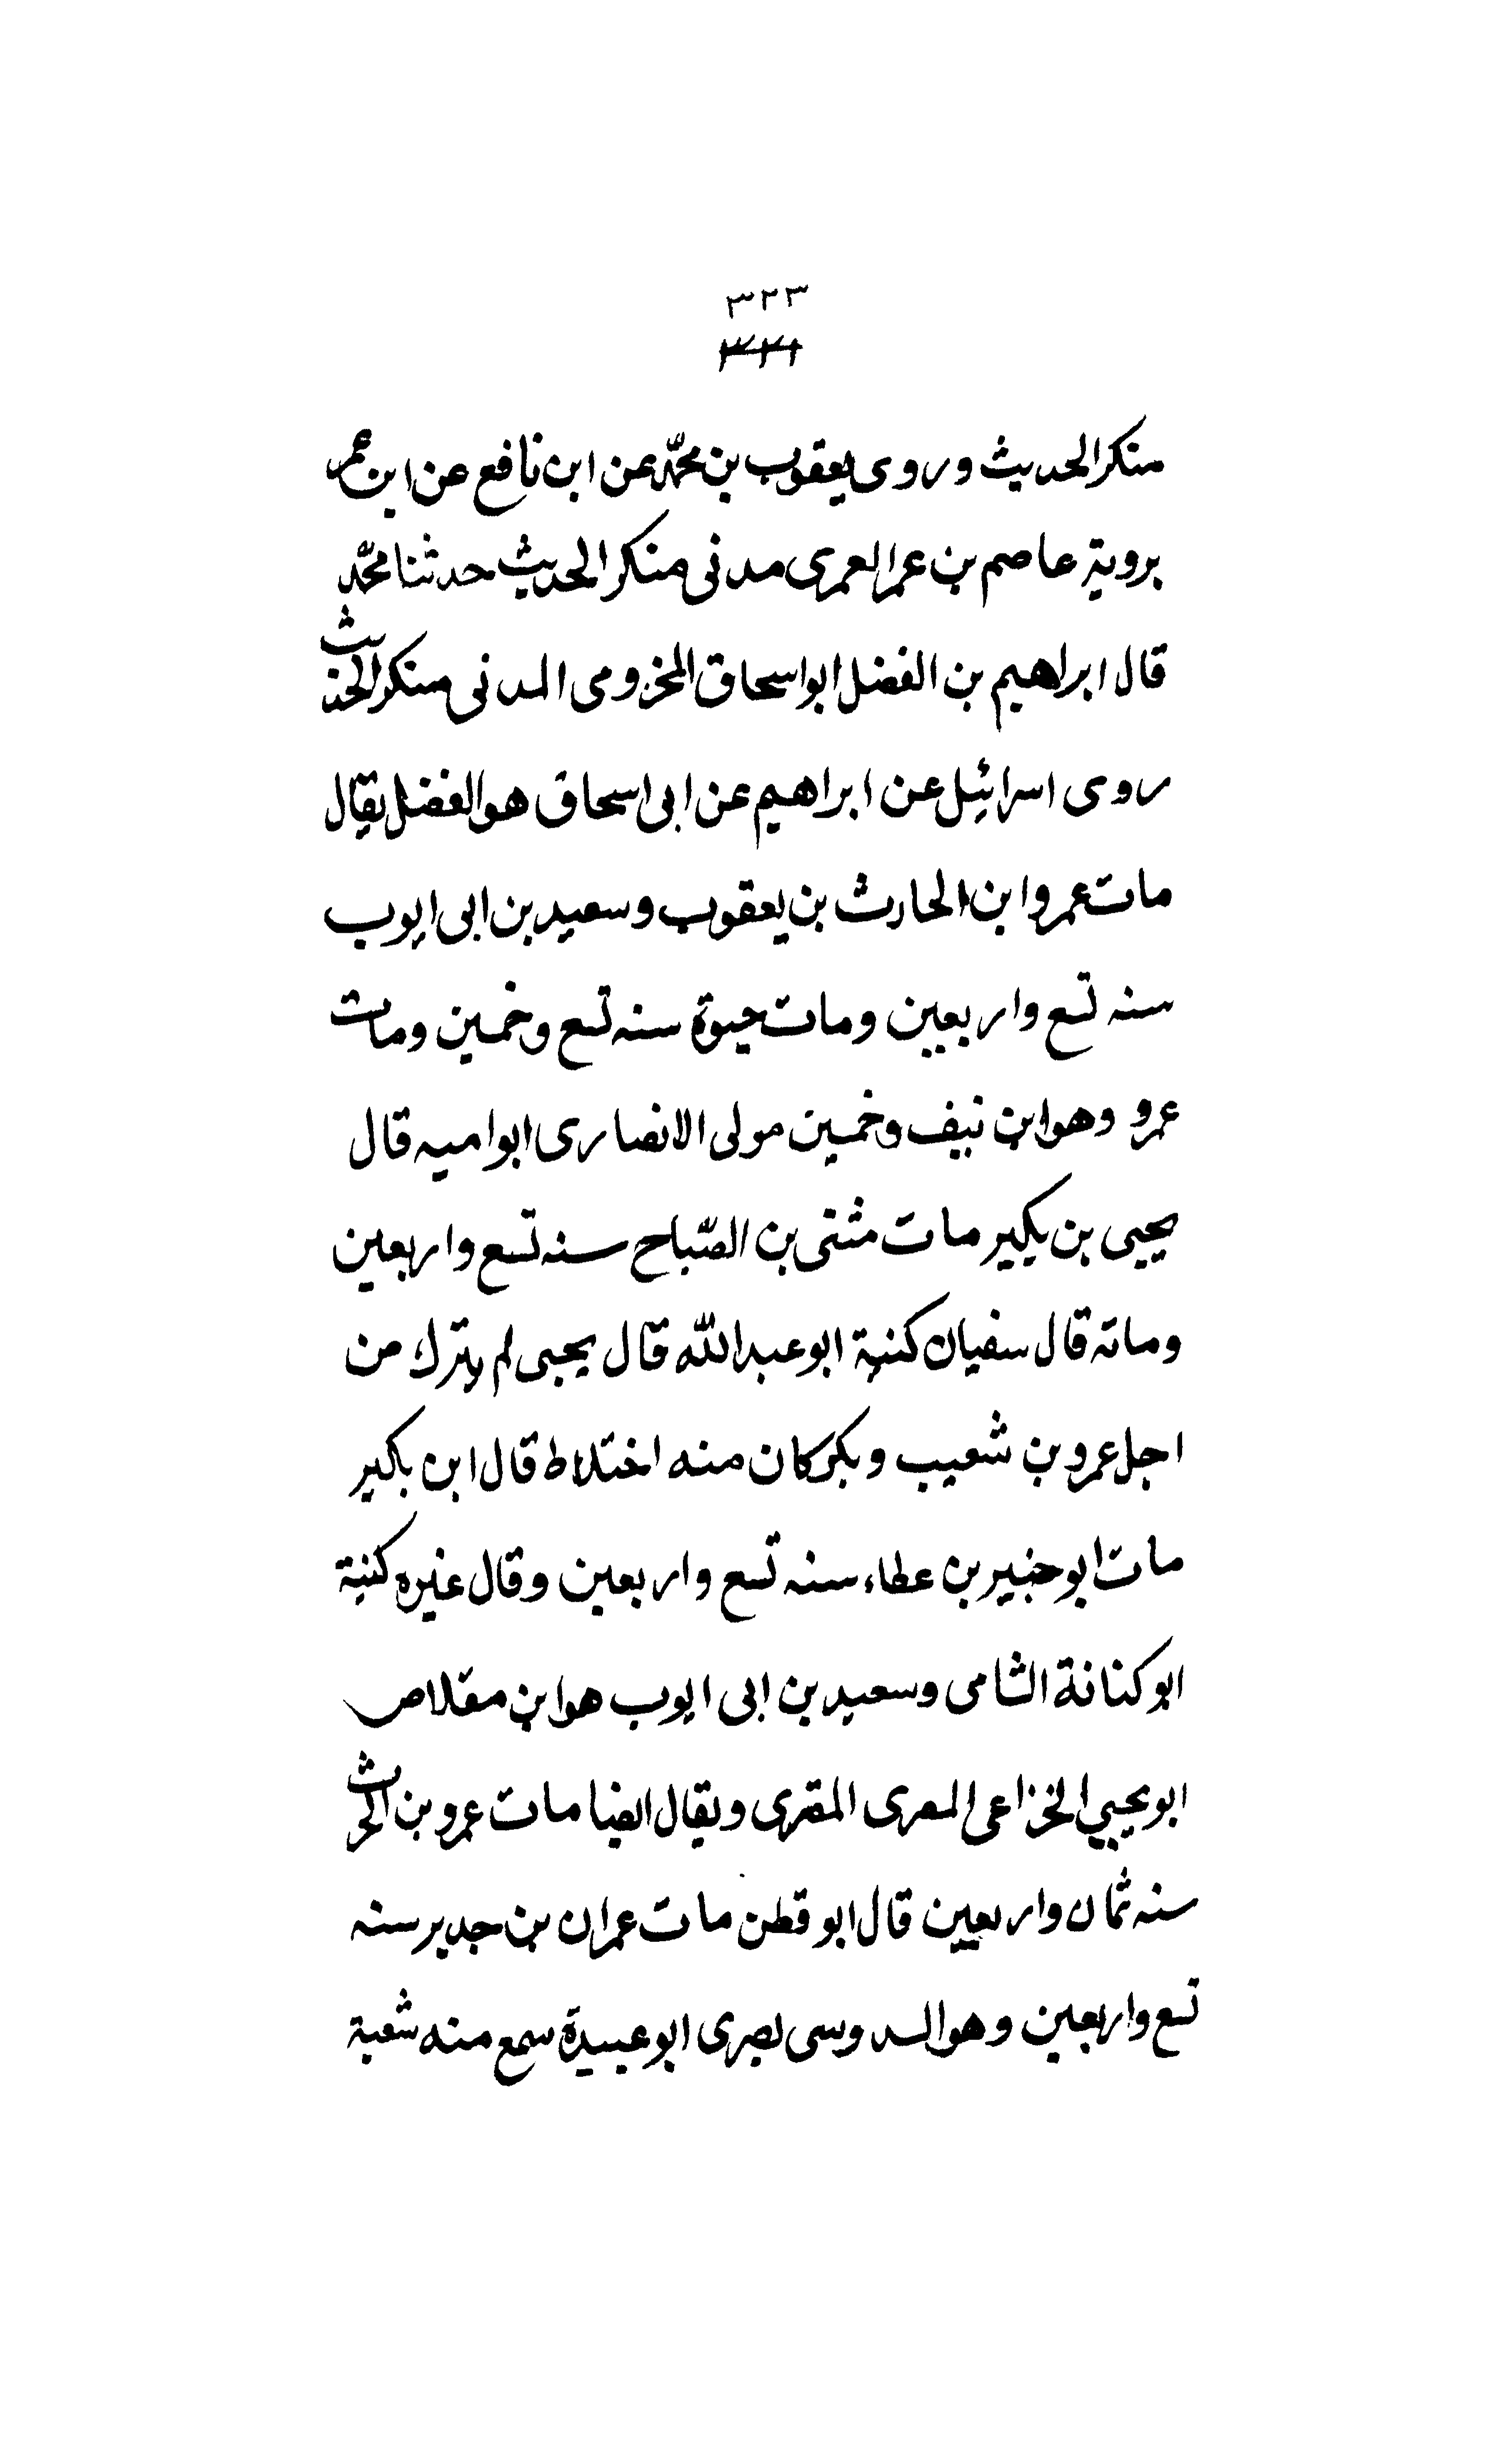 ٣٢٣
٣٢١
منكر الحديث وروى يعقوب بن محمّد عن ابن نافع عن ابن عمر
بروية عاصم بن عمر العمرى مدنى منكر الحديث حدثنا محمّد
قال ابراهيم بن الفضل ابو اسحاق المخزومى المدنى منكر الحديث
روى اسرائيل عن ابراهيم عن ابى اسحاق هو الفضل يقال
مات عمرو ابن الحارث بن يعقوب وسعيد بن ابى ايوب
سنه تسع واربعين ومات حيوة سنه تسع وخمسين ومات
عمرو وهو ابن نيف وخمسين مولى الانصارى ابو اميه قال
يحيى بن بكير مات مثنى بن الصّباح سنه تسع واربعين
ومائه قال سفيان كنية ابو عبد اللّه قال يحيى لم يترك من
اجل عمرو بن شعيب وبكر كان منه اختلاط قال ابن بكير
مات ابو حنبير بن عطاء سنه تسع واربعين وقال غيره كنية
ابو كنانة الشامى وسعيد بن ابى ايوب هو ابن مقلاص
ابو يحيي الخزاعى المصرى المقرى ويقال ايضا مات عمرو بن الحرث
سنه ثمان واربعين قال ابو قطن مات عمران بن جدير سنه
تسع واربعين وهو السدوسى بصرى ابو عبيدة سمع منه شعبة